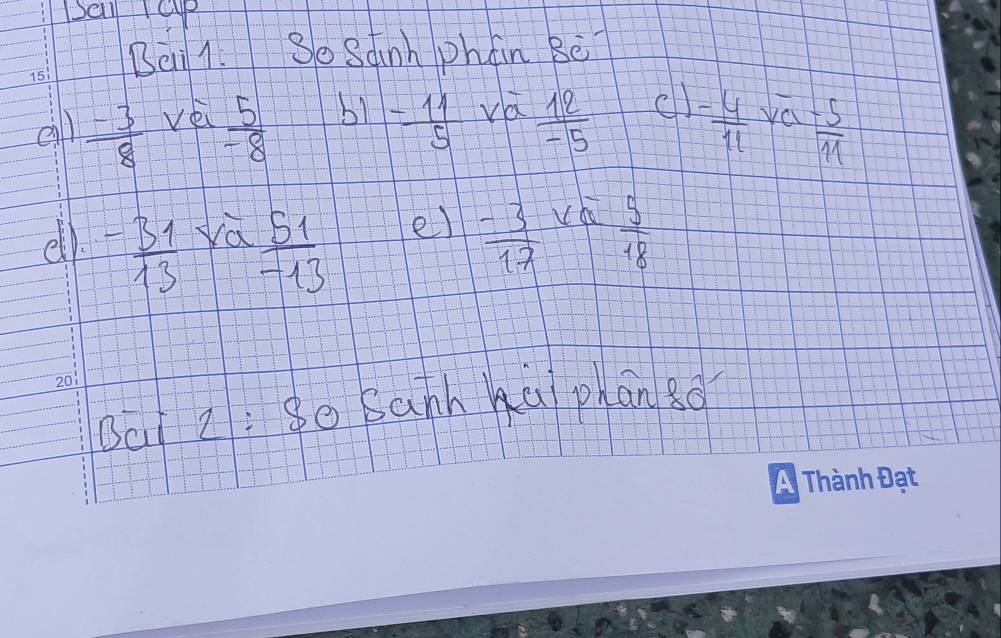 15
Bài 1: So sánh phân số
a) -3/8 và 5/-8 b) -11/5 và 12/-5 c) -4/11 và -5/11
d) -31/13 và 51/-13 e) -3/17 và 5/18
20
Bài 2: So sánh hai phân số
A Thành Đạt